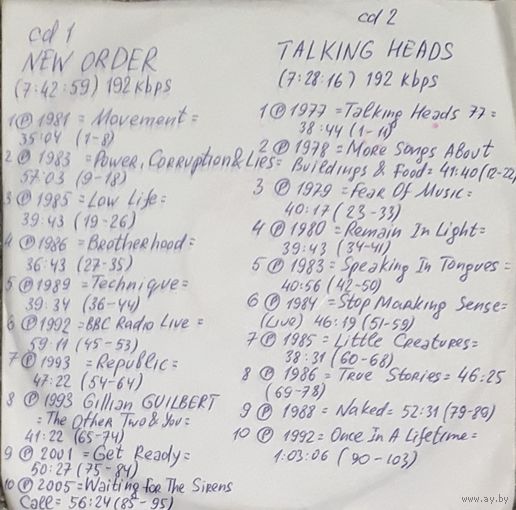 cd 1
NEW ORDER
(7:42:59) 192 kbps
1 Ⓟ 1981 = Movement =
35:04 (1-8)
2 Ⓟ 1983 = Power, Corruption & Lies =
57:03 (9-18)
3 Ⓟ 1985 = Low Life =
39:43 (19-26)
4 Ⓟ 1986 = Brotherhood =
36:43 (27-35)
5 Ⓟ 1989 = Technique =
39:34 (36-44)
6 Ⓟ 1992 = BBC Radio Live =
59:11 (45-53)
7 Ⓟ 1993 = Republic =
47:22 (54-64)
8 Ⓟ 1993 Gillian GUILBERT
= The Other Two & You =
41:22 (65-74)
9 Ⓟ 2001 = Get Ready =
50:27 (75-84)
10 Ⓟ 2005 = Waiting For The Sirens
Call = 56:24 (85-95)
cd 2
TALKING HEADS
(7:28:16) 192 kbps
1 Ⓟ 1977 = Talking Heads 77 =
38:44 (1-11)
2 Ⓟ 1978 = More Songs About
Buildings & Food = 41:40 (12-22)
3 Ⓟ 1979 = Fear Of Music =
40:17 (23-33)
4 Ⓟ 1980 = Remain In Light =
39:43 (34-41)
5 Ⓟ 1983 = Speaking In Tongues =
40:56 (42-50)
6 Ⓟ 1984 = Stop Marking Sense =
(Live) 46:19 (51-59)
7 Ⓟ 1985 = Little Creatures =
38:31 (60-68)
8 Ⓟ 1986 = True Stories = 46:25
(69-78)
9 Ⓟ 1988 = Naked = 52:31 (79-89)
10 Ⓟ 1992 = Once In A Lifetime =
1:03:06 (90-103)
www.ay.by